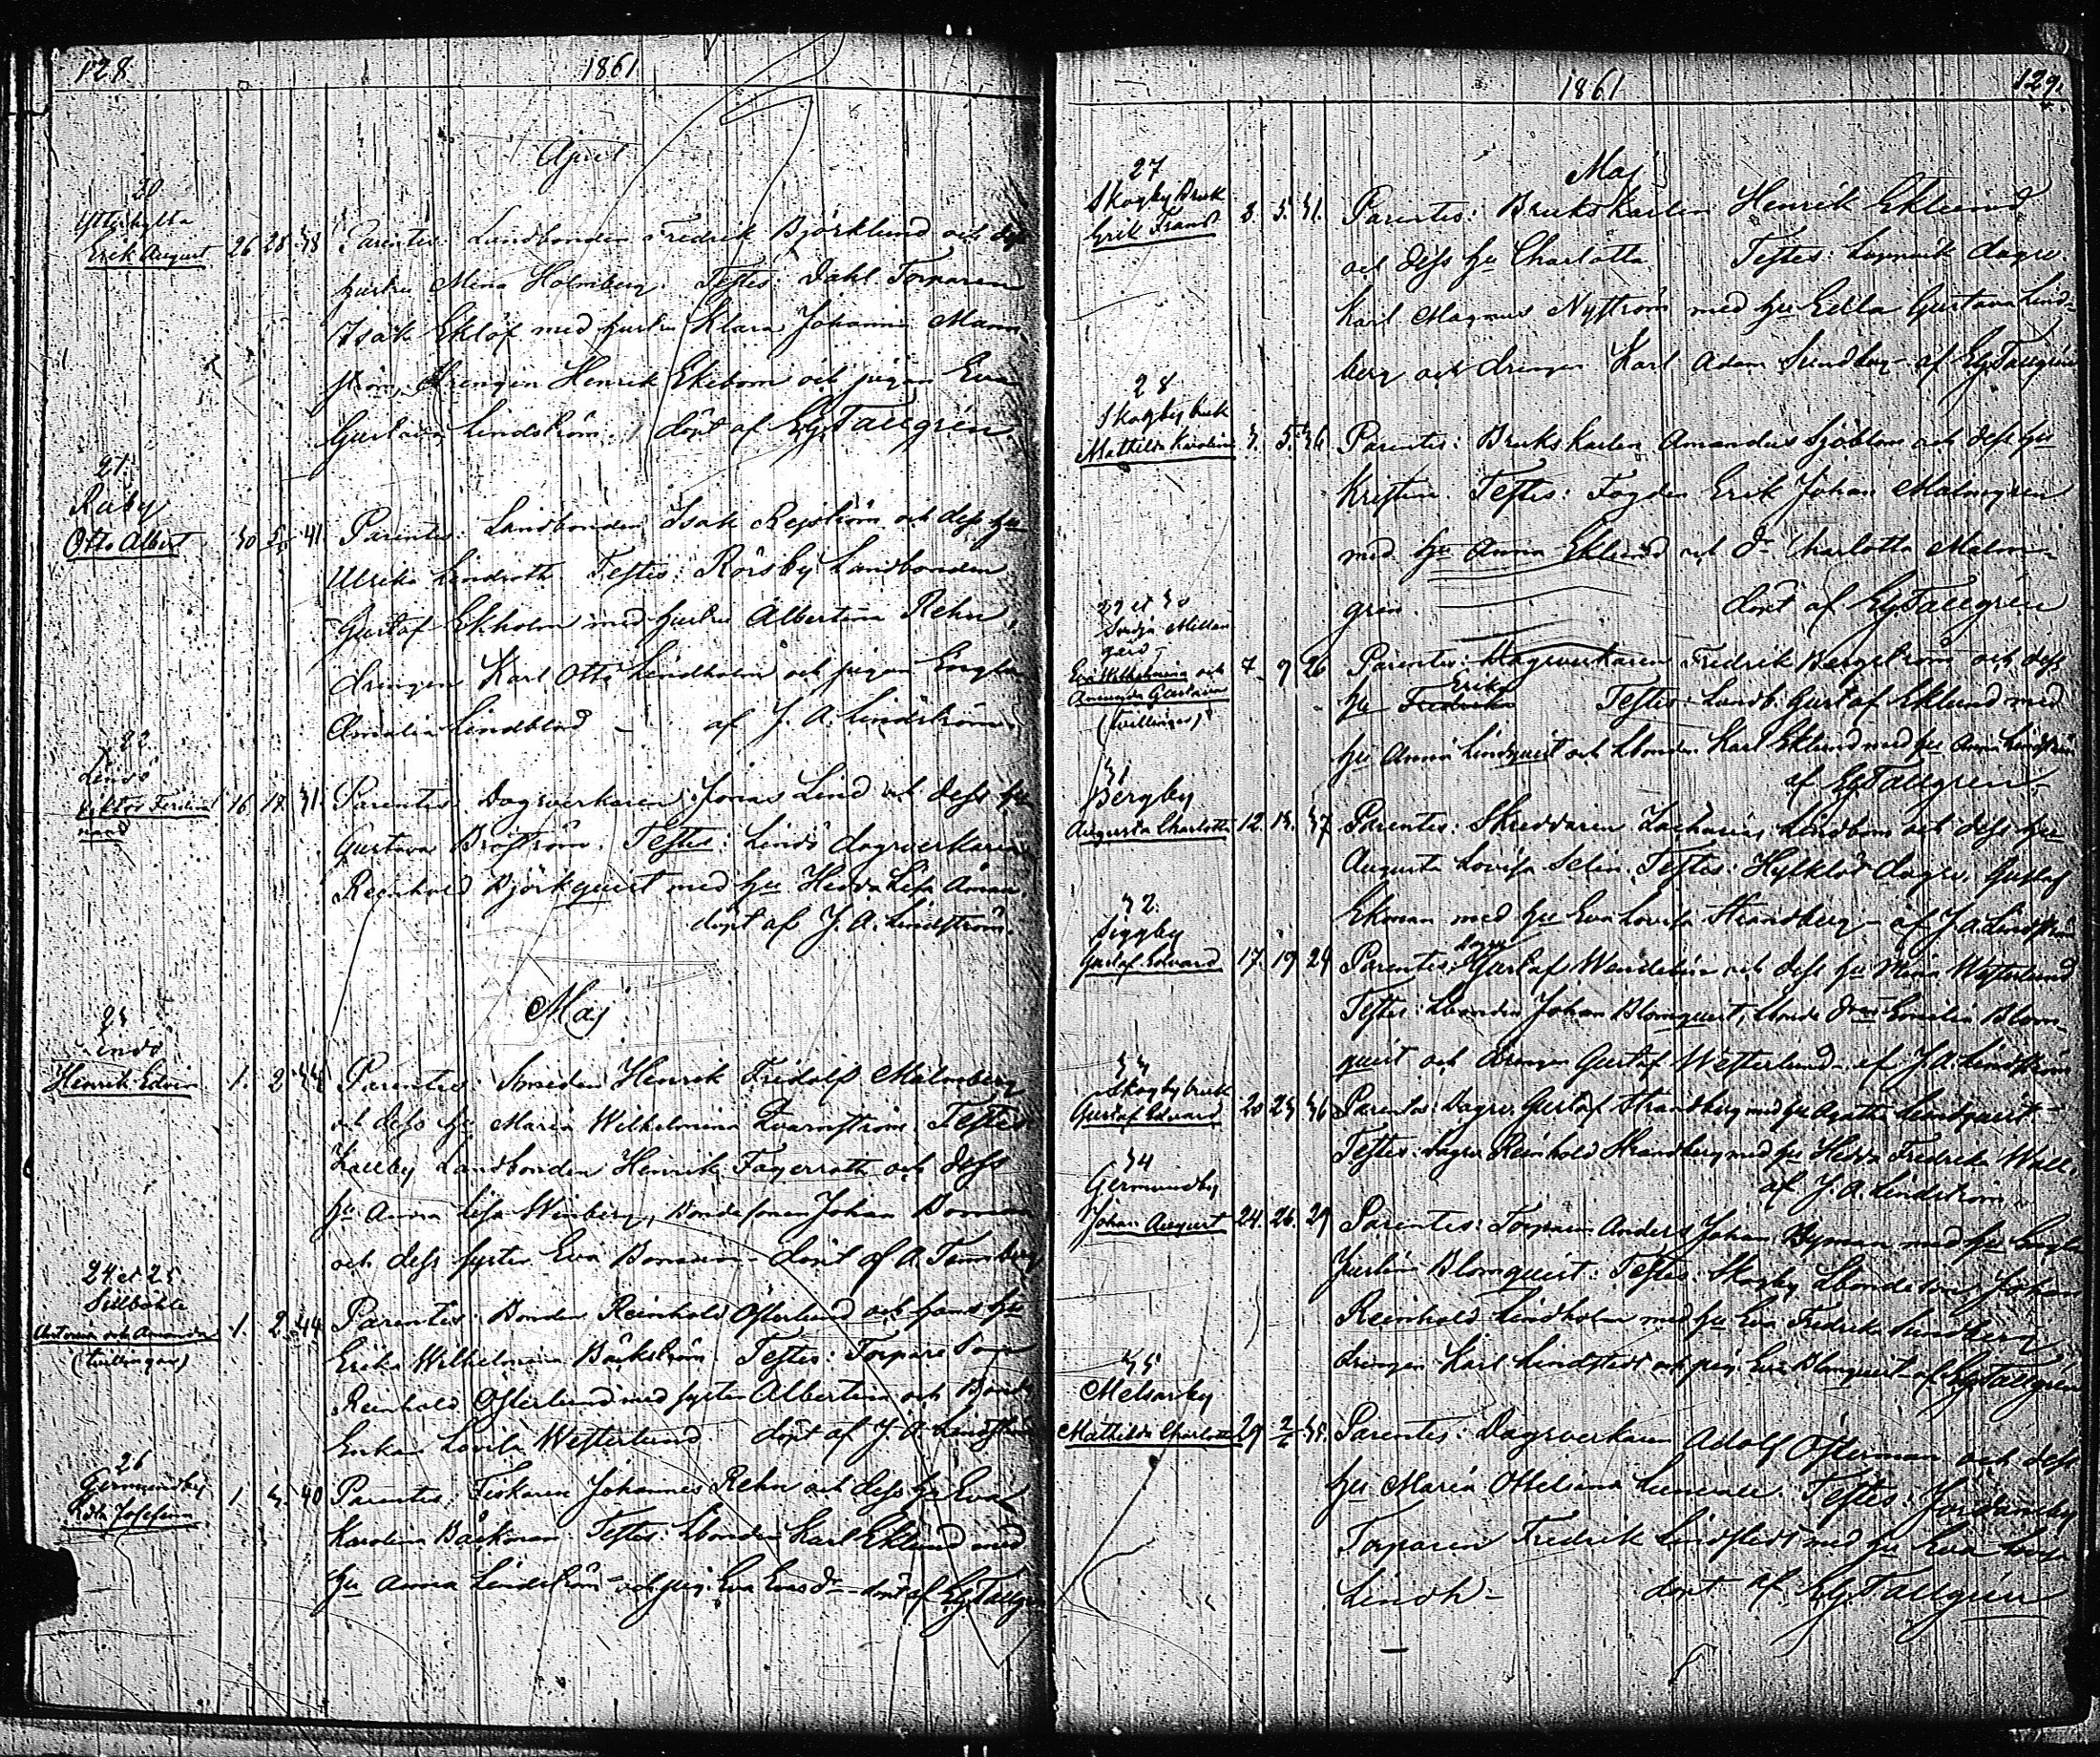 128
1861
April
20
Ytterkylta
Erik August
26 28 38
Parentes: Landbonden Fredrik Björklund och dess
hustru Mina Holmberg. Testes: Dahl Torparen
Isak Eklöf med hustru Klara Johanna Malm
ström, drengen Henrik Ekebom och pigan Eva
Gustava Lindström. döpt af Eg. Tallgrén
21
Råby
Otto Albert
30 5/5 41
Parentes: Landbonden Isak Rejström och dess hu
Ulrika Lindroth. Testes: Rörsby Landbonden
Gustaf Ekholm med hustru Albertina Rehn,
drengen Karl Otto Lindholm och pigan Engla
Amalia Lindblad – af J. A. Lindström.
22
Lindö
Viktor Ferdi
nand
16 17 31
Parentes: Dagsverkaren Jonas Lind och dess hu
Gustava Broström. Testes: Lindö dagsverkaren
Reinhold Björkquist med hu Hedda Lisa Åman
döpt af J. A. Lindström.
Maj
23
Lindö
Henrik Edvin
1. 2
Parentes: Smeden Henrik Fridolf Malmberg
och dess hu Maria Wilhelmina Qvarnström. Testes
Kallby Landbonden Henrik Fagerroth och dess
hu Anna Lisa Winberg, Bondesonen Johan Boman
och dess syster Eva Boman – döpt af A. Tennberg
24 et 25
Sillböhle
Antonia och Amanda
(tvillingar)
1. 2 44
Parentes: Bonden Reinhold Österlund och hans hu
Erika Wilhelmina Bäckström. Testes: Torpare Son
Reinhold Österlund med syster Albertina och Bonde
Enkan Lovisa Westerlund döpt af J. A. Lindström
26
Germundby
Josefina
1. 3. 40
Parentes: Fiskaren Johannes Rehn och dess hu Eva
Karolina Bäckman. Testes: Lbonden Karl Eklund med
hu Anna Lindström och pig. Eva Evasdr – döpt af Eg. Tallgren
129.
1861
Maj
27
Skogby Bruk
Erik Frans
3. 5. 31.
Parentes: Brukskarlen Henrik Eklund
och dess hu Charlotta Testes: Lagmark dagsv.
Karl Magnus Nyström med hu Gustava Lind-
berg och drengen Karl Adam Sundberg – af Eg. Tallgrén
28
Skogby bruk
Mathilda Karolina
3. 5. 36
Parentes: Brukskarlen Amandus Sjöblom och dess hu
Kristina. Testes: Fogden Erik Johan Malmgren
med hu Anna Eklund och dr Charlotta Malm-
gren. döpt af Eg. Tallgrén
29 et 30
Svedja Mellan
gård
Eva Wilhelmina och
Amanda Gustava
(tvillingar)
7. 9 26
Parentes: Dagsverkaren Fredrik Bergström och dess
hu Fredrika Erika Testes: Landb. Gustaf Eklund med
hu Anna Lindquist och Lbonden Karl Eklund med hu Anna Lindström
af Eg. Tallgren.
31
Bergby
Augusta Charlotta
12. 13. 37
Parentes: Skreddaren Zacharias Lindbom och dess hu
Augusta Lovisa Selin. Testes: Dagsv. Gustaf
Ekman med hu Eva Lovisa Strandberg – af J. A. Lindström
32.
Siggby
Gustaf Edvard
17. 19 29
Parentes: Dagsv Gustaf Wendelin och dess hu Mina Westerlund
Testes: Lbonden Johan Blomquist, Emilia Blom-
quist och drengen Gustaf Westerlund – af J. A. Lindström
33
Skogby bruk
Gustaf Edvard
20 23 36
Parentes: Dagsv. Gustaf Strandberg med hu Agatha Lindquist. –
Testes: dagsv. Reinhold Strandberg med hu Hedda Fredrika Wall.
af J. A. Lindström
34
Germundby
Johan August
24. 26. 29
Parentes: Torparen Anders Johan Nyman med hu Engla
Justina Blomquist. Testes: Skogby Lbondeson Johan
Reinhold Lindholm med hu Eva Fredrika Lundberg
drengen Karl Lindstedt och pig. Eva Blomquist – af Eg. Tallgrén
35
Melsarby
Mathilda Charlotta
29 2/6 35.
Parentes: Dagsverkaren Adolf Österman och dess
hu Maria Ottiliana Testes:
Torparen Fredrik Lindstedt med hu Eva
Lindh – döpt af Eg. Tallgrén